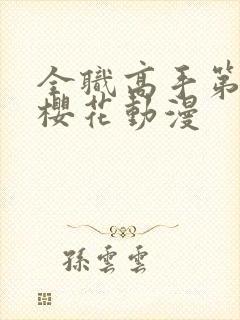 全職高手第
櫻花動漫
孫雲雲